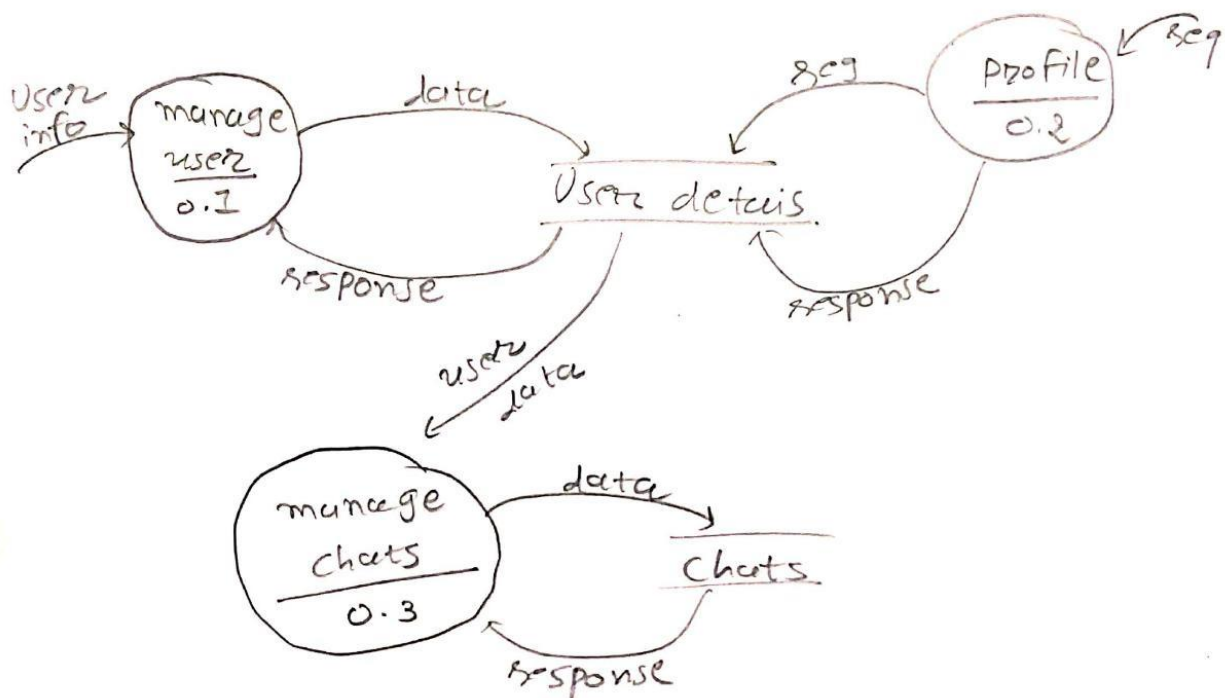 User
info
manage
user
0.1
data
response
User detais
req
profile
0.2
req
response
user
data
manage
chats
0.3
data
chats
response